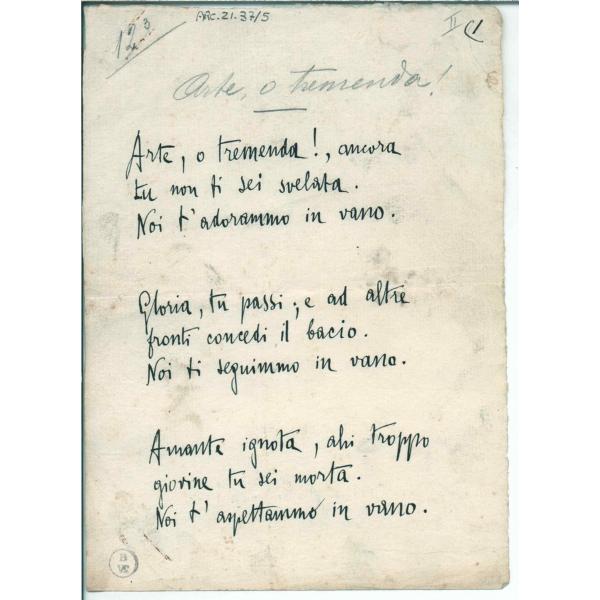 12 3
ARC.21.37/5
II C1
Arte, o tremenda!
Arte, o tremenda!, ancora
tu non ti sei svelata.
Noi t'adorammo in vano.
Gloria, tu passi; e ad altre
fronti concedi il bacio.
Noi ti seguimmo in vano.
Amante ignota, ahi troppo
giovine tu sei morta.
Noi t'aspettammo in vano.